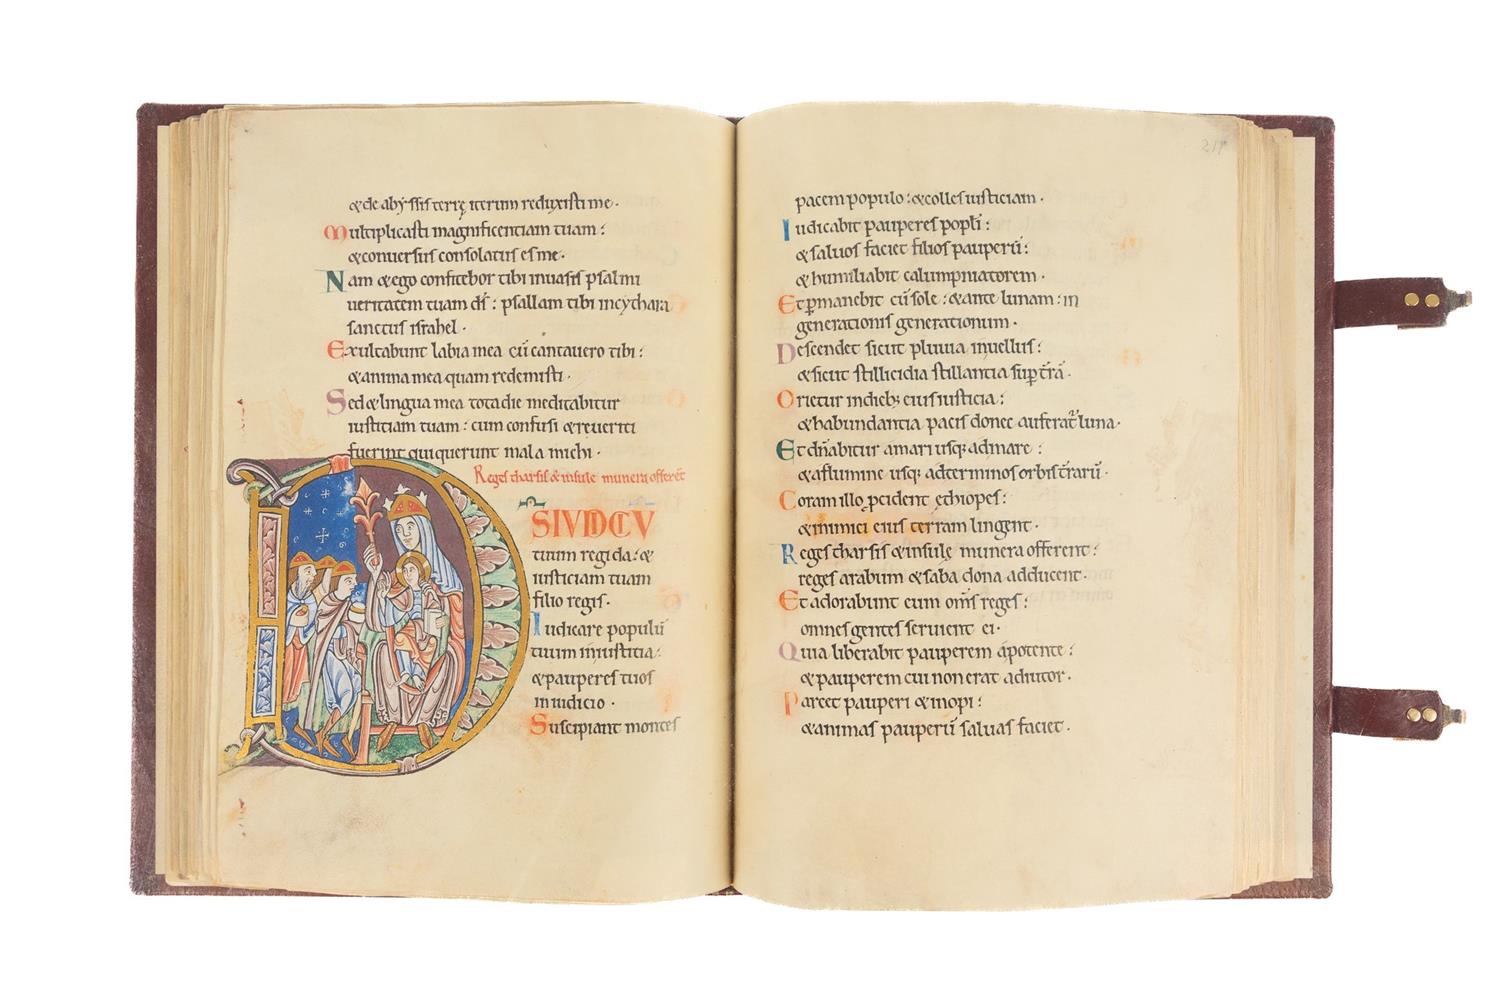 &de abyssis terrę iterum reduxisti me·
Multiplicasti magnificentiam tuam:
& conuersus consolatus es me·
Nam & ego confitebor tibi inuasis psalmi
ueritatem tuam ds̄: psallam tibi incythara
sanctus israhel·
Exultabunt labia mea cū cantauero tibi:
& anima mea quam redemisti·
Sed & lingua mea tota die meditabitur
iusticiam tuam: cum confusi & reueriti
fuerint qui querunt mala michi·
Reges tharsis & insule munera offerēt
DS IUDICIU
tuum regi da: &
iusticiam tuam
filio regis·
Iudicare populū
tuum iniusticia:
& pauperes tuos
iniudicio·
Suscipiant montes
217
pacem populo: & colles iusticiam·
Iudicabit pauperes popli:
& saluos faciet filios pauperū:
& humiliabit calumpniatorem·
Et pmanebit cū sole: & ante lunam: in
generationis generationum·
Descendet sicut pluuia inuellus:
& sicut stillicidia stillantia sup trā·
Orietur indieb; eius iusticia:
& habundantia pacis donec auferat luna·
Et dn̄abitur amari usq; admare:
& aflumine usq; adterminos orbis trarū·
Coram illo pcident ęthiopes:
& inimici eius terram lingent·
Reges tharsis & insule munera offerent:
reges arabum & saba dona adducent·
Et adorabunt eum om̄s reges:
omnes gentes seruient ei·
Quia liberabit pauperem apotente:
& pauperem cui non erat adiutor·
Parcet pauperi & inopi:
& animas pauperū saluas faciet·